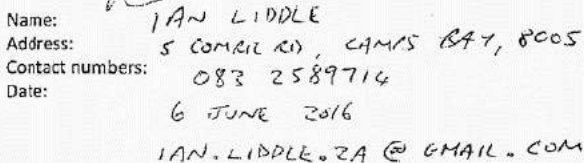 Name: IAN LIDDLE
Address: 5 COMRIE RD, CAMPS BAY, 8005
Contact numbers: 083 2589714
Date: 6 JUNE 2016
IAN.LIDDLE.ZA @ GMAIL.COM